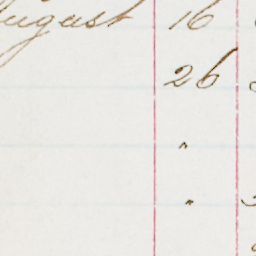 August 16
26
"
"